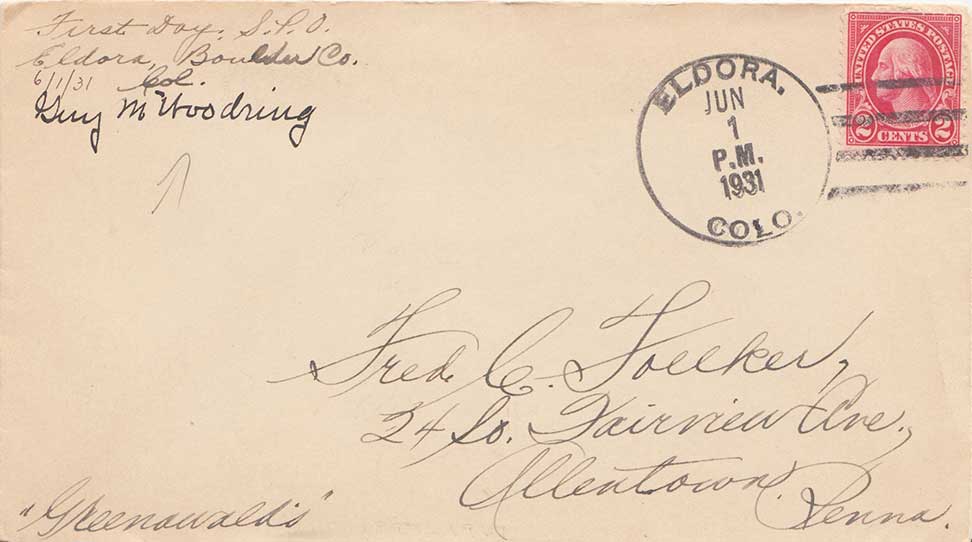 First Day, S.P.O.
Eldora, Boulder Co.
6/1/31 Col.
Guy M Woodring
ELDORA.
JUN
1
P.M.
1931
COLO.
UNITED STATES POSTAGE
2 CENTS 2
Fred. C. Foelker,
24 So. Fairview Ave.,
Allentown
Penna.
"Greenawald's"